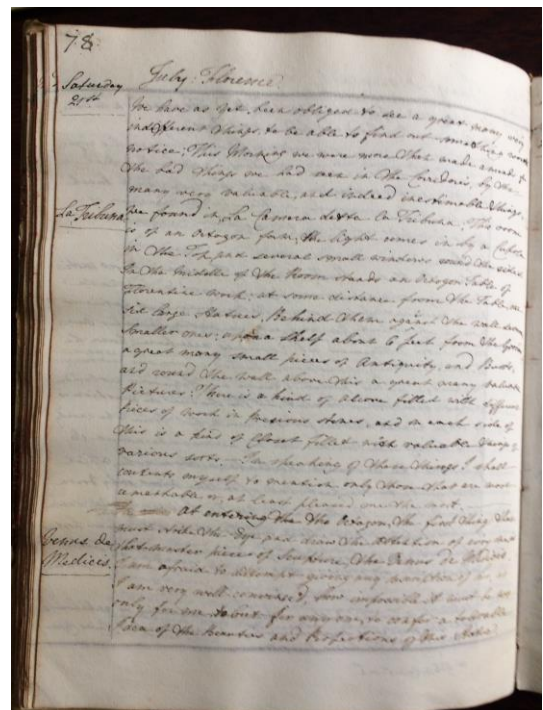 78
July: Florence
Saturday
21st
We have as yet been obliged to see a great many very
indifferent things, to be able to find out something worth
notice: This Morning we were more than made amends for
the bad things we had seen in the Coridors, by the
many very valuable, and indeed inestimable things,
La Tribuna
we found in La Camera detta la Tribuna. This room
is of an Octagon form, the light comes in by a Cupola
in the Top and several small windows round the sides
In the middle of the Room stands an Octagon Table of
Florentine work: at some distance from the Table, are
six large Statues, Behind them against the wall seven
smaller ones: upon a shelf about 6 feet from the Ground
a great many small pieces of Antiquity, and Busts,
and round the wall above this a great many valuable
Pictures. There is a kind of alcove filled with different
pieces of work in Precious stones, and on each side of
this is a kind of Closet filled with valuable things of
various sorts. In speaking of these things I shall
contente myself to mention only those that are most
remarkable or at least pleased me the most.
At entering the Octagon, the first thing that
Venus de
Medicis.
must strike the Eye and draw the attention of every one
that master piece of Sculpture, the Venus de Medicis
I am afraid to attempt giving any of her, as
I am very well convinced, how impossible it must be not
only for me to but for any one, to confer a tolerable
Idea of the Beauties and Perfections of this Statue.